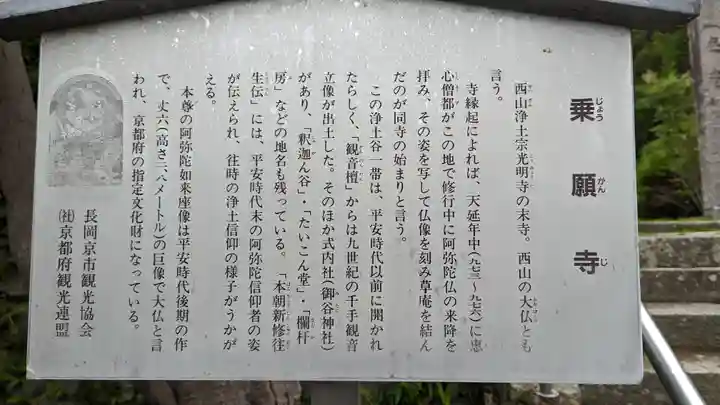 乗願寺
じょうがんじ
西山浄土宗光明寺の末寺。西山の大仏とも
言う。
寺縁起によれば、天延年中(九七三~九七六)に恵
心僧都がこの地で修行中に阿弥陀仏の来降を
拝み、その姿を写して仏像を刻み草庵を結ん
だのが同寺の始まりと言う。
この浄土谷一帯は、平安時代以前に開かれ
たらしく、「観音檀」からは九世紀の千手観音
立像が出土した。そのほか式内社(御谷神社)
があり、「釈迦ん谷」・「たいこん堂」・「欄杆
房」などの地名も残っている。「本朝新修往
生伝」には、平安時代末の阿弥陀信仰者の姿
が伝えられ、往時の浄土信仰の様子がうかが
える。
本尊の阿弥陀如来座像は平安時代後期の作
で、丈六(高さ二、八メートル)の巨像で大仏と言
われ、京都府の指定文化財になっている。
長岡京市観光協会
(社)京都府観光連盟